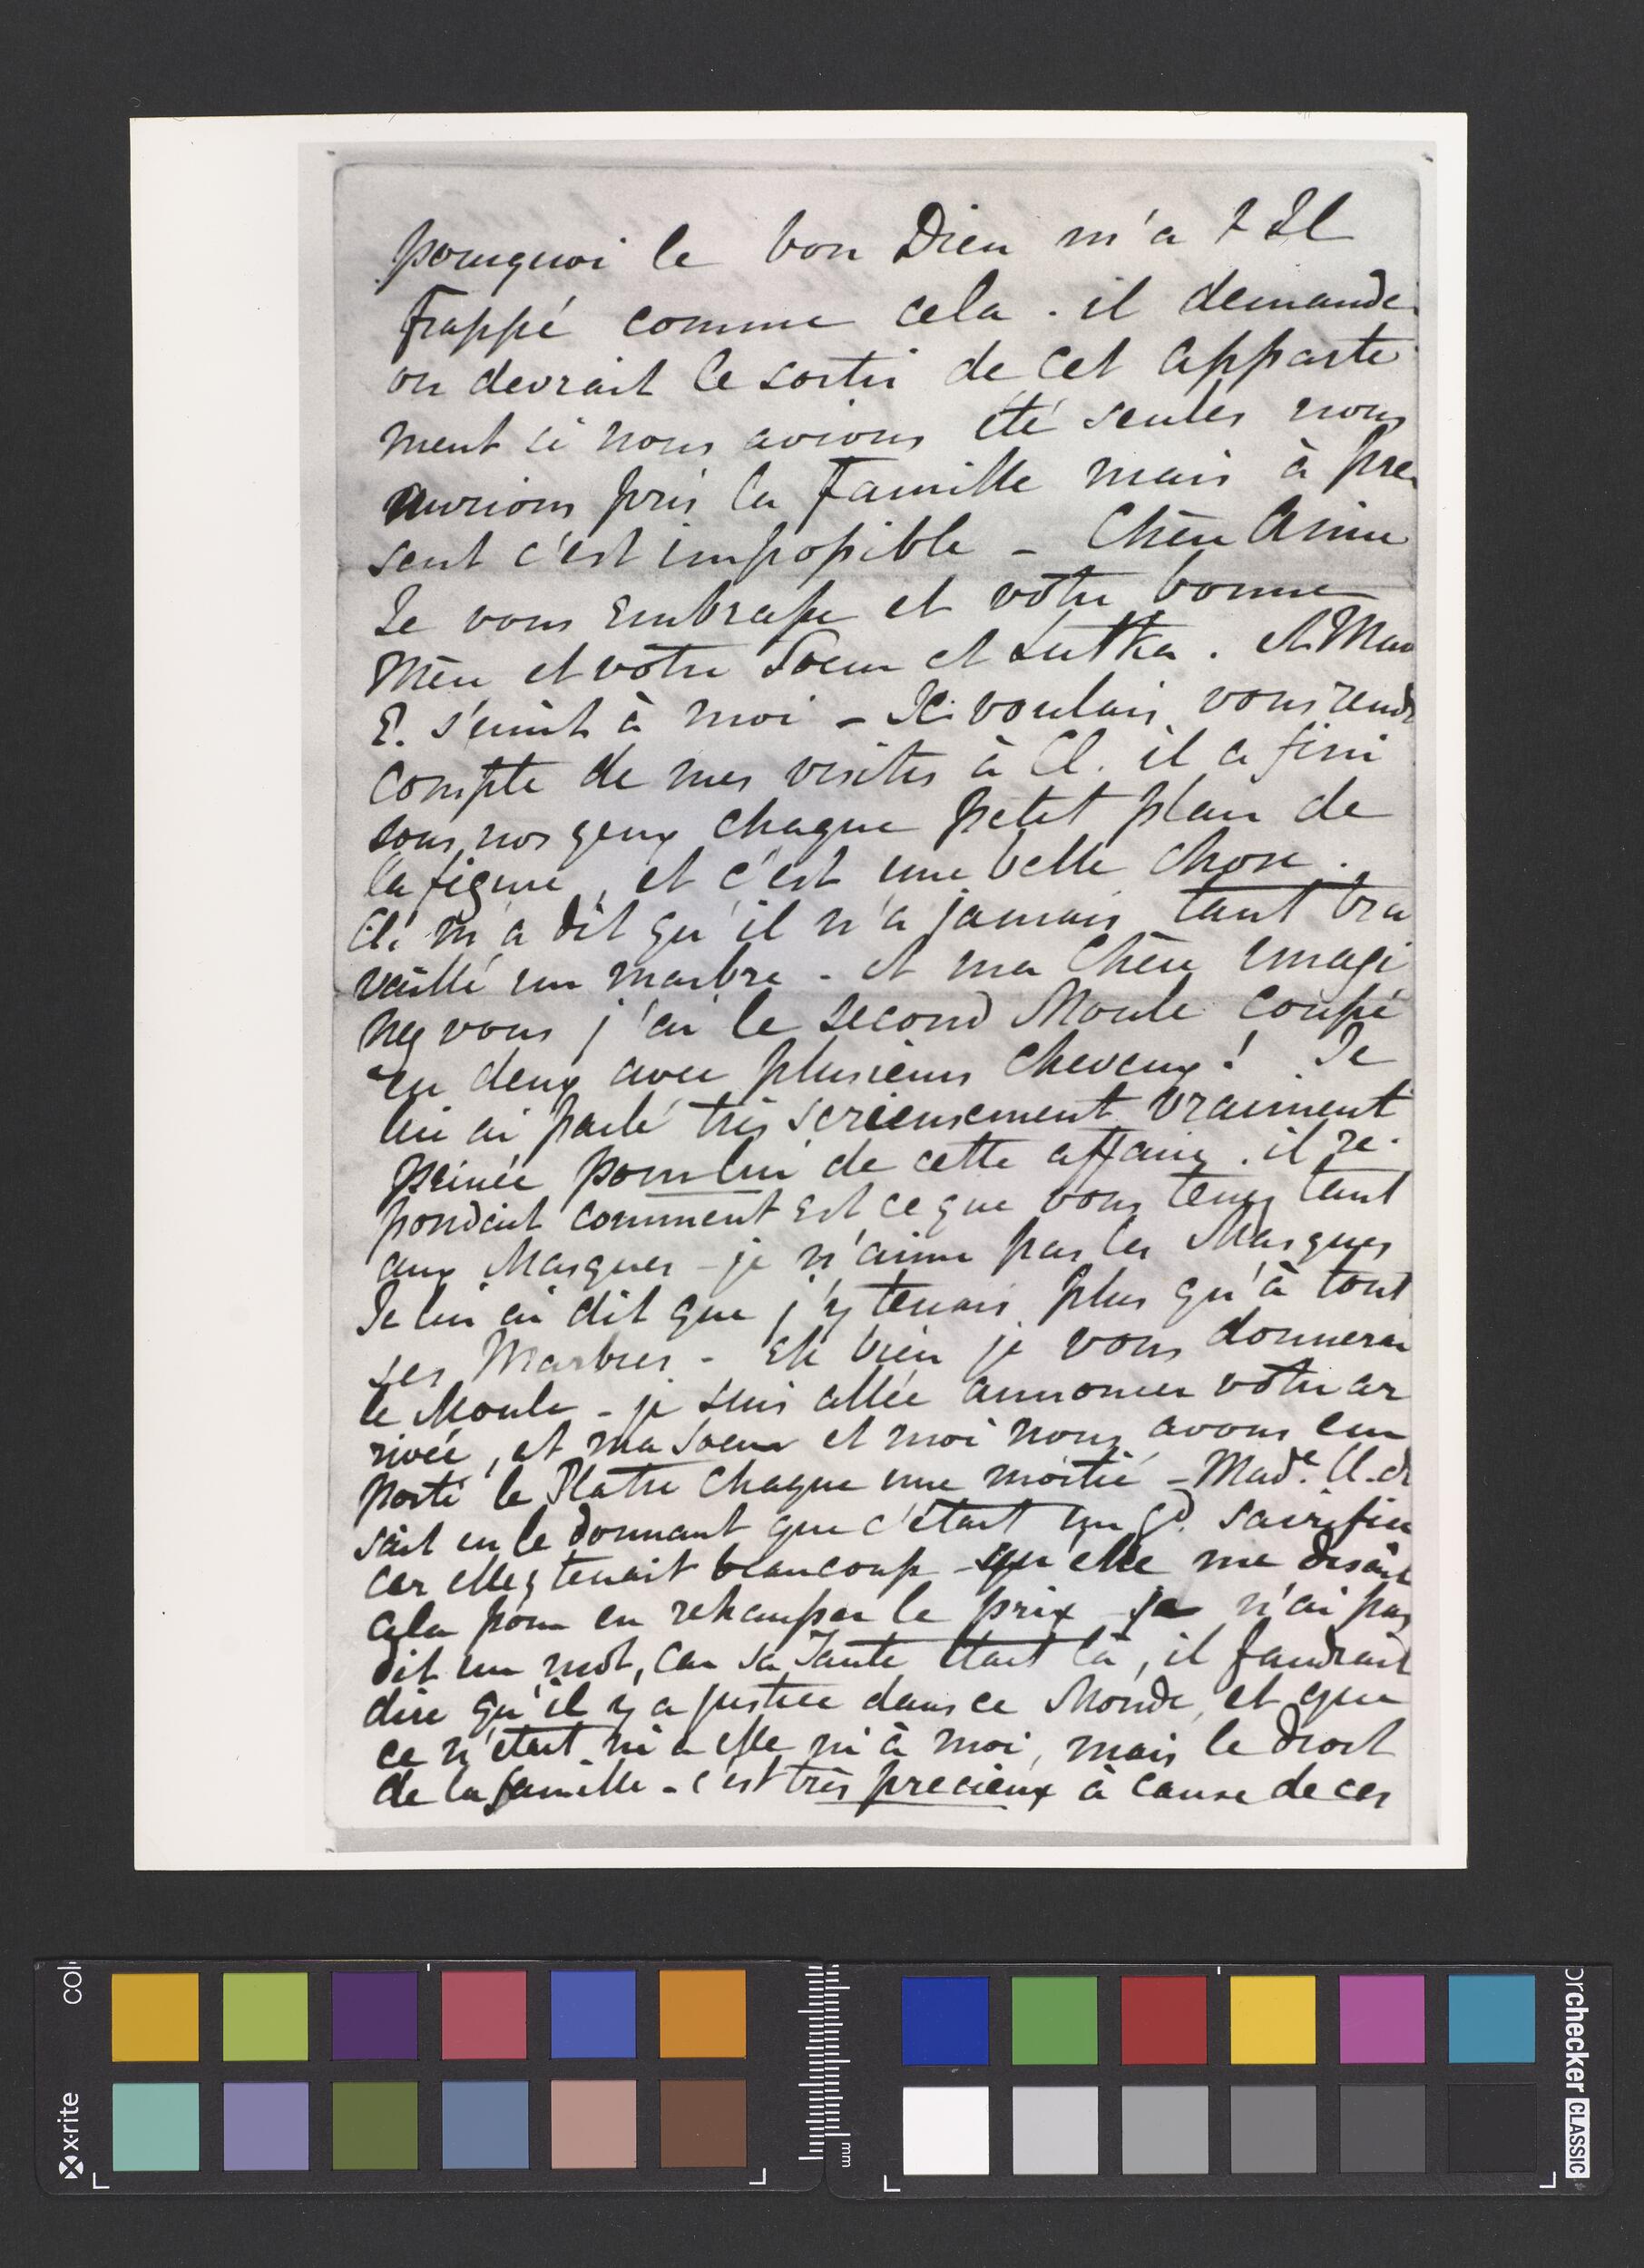 pourquoi le bon Dieu m'a t Il
frappé comme cela . il demande
on devrait le sortir de cet apparte
ment si nous avions été seules nous
aurions pris la Famille mais à pre
sent c'est impossible – Chère Amie
Je vous Embrasse et vôtre bonne
Mère et vôtre Soeur et Lutka . et Mad
E. s'unit à moi – Je voulais vous rendre
compte de mes visites à Cl. il a fini
sous nos yeux chaque petit plan de
la figure , et c'est une belle chose .
Cl. m'a dit qu'il n'a jamais tant tra
vaillé un marbre - et ma Chère imagi
nez vous j'ai le second Moule coupé
en deux avec plusieurs cheveux ! Je
lui ai parlé très serieusement vraiment
peinée pour lui de cette affaire . il re-
pondait comment Est ce que vous tenez tant
aux Masques – je n'aime pas les Masques
Je lui ai dit que j'y tenais plus qu'à tout
ses Marbres - Eh bien je vous donnerai
le Moule - je suis allée annoncer vôtre ar
rivée , et ma Soeur et moi nous avons em
porté le Platre chaque une moitié – Made. Cl. di
sait en le donnant que c'était un gd. sacrifice
car elle y tenait beaucoup - qu'elle me disait
cela pour en rehausser le prix - je n'ai pas
dit un mot, car sa Tante était là , il faudrait
dire qu'il y a justice dans ce Monde, et que
ce n'était ni à elle ni à moi , mais le droit
de la famille - c'est très precieux à cause de ces
x-rite
colorchecker CLASSIC
mm